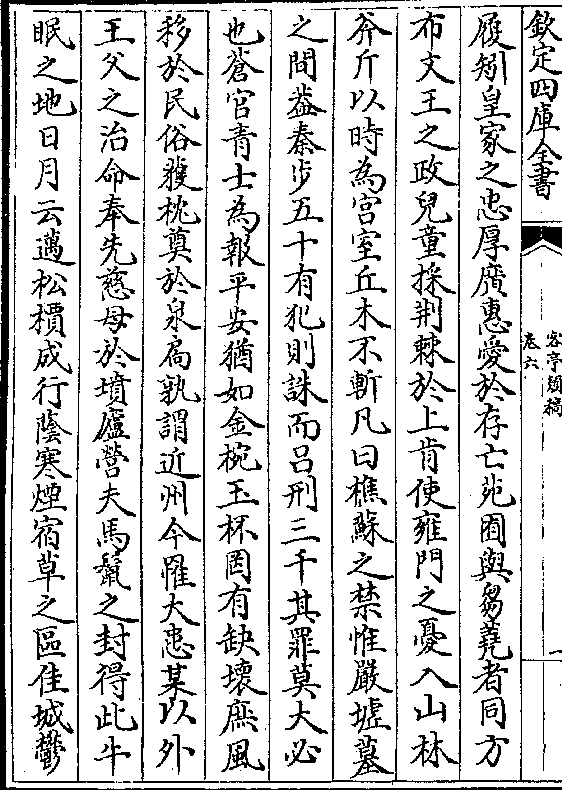 欽定四庫全書
客亭類稿
卷六
履矧皇家之忠厚廣惠愛於存亡苑囿與芻蕘者同方
布文王之政兒童採荆棘於上肯使雍門之憂入山林
斧斤以時為宫室丘木不斬凡曰樵蘇之禁惟嚴墟墓
之間葢秦步五十有犯則誅而呂刑三千其罪莫大必
也蒼官青士為報平安猶如金椀玉杯罔有缺壞庶風
移於民俗獲枕奠於泉扄孰謂近州今罹大患某以外
王父之治命奉先慈母於墳廬營夫馬鬛之封得此牛
眠之地日月云邁松檟成行蔭寒煙宿草之區佳城鬱